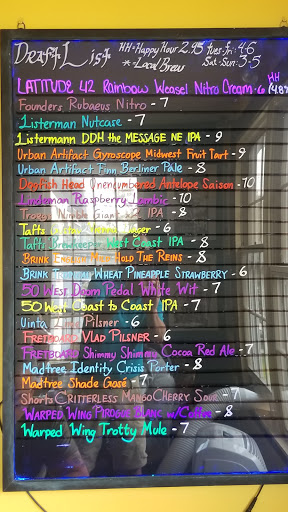 Draft List HH=Happy Hour 2.95 Tues-Fri 4-6
*=Local Brew Sat-Sun: 3-5
HH
LATITUDE 42 Rainbow Weasel Nitro Cream - 6
Founders Rubaeus Nitro - 7
Listerman Nutcase - 7
Listermann DDH the MESSAGE NE IPA - 9
Urban Artifact Gyroscope Midwest Fruit Tart - 9
Urban Artifact Finn Berliner Pale - 8
Dogfish Head Unencumbered Antelope Saison - 10
Lindeman Raspberry Lambic - 10
Troegs Nimble Giant 2x IPA - 8
Tafts Lager - 6
Taft Brewkeeper West Coast IPA - 8
Brink Hold The Reins - 8
Brink Wheat Pineapple Strawberry - 6
50 West Doom Pedal White Wit - 7
50 West Coast to Coast IPA - 7
Uinta Pilsner - 6
Fretboard Vlad PILSNER - 6
Fretboard Shimmy Shimmy Cocoa Red Ale - 7
Madtree Identity Crisis Porter - 8
Madtree Shade Gosé - 7
Shorts Critterless Mango Cherry Sour - 7
Warped Wing Pirogue Blanc w/Coffee - 8
Warped Wing Trotty Mule - 7